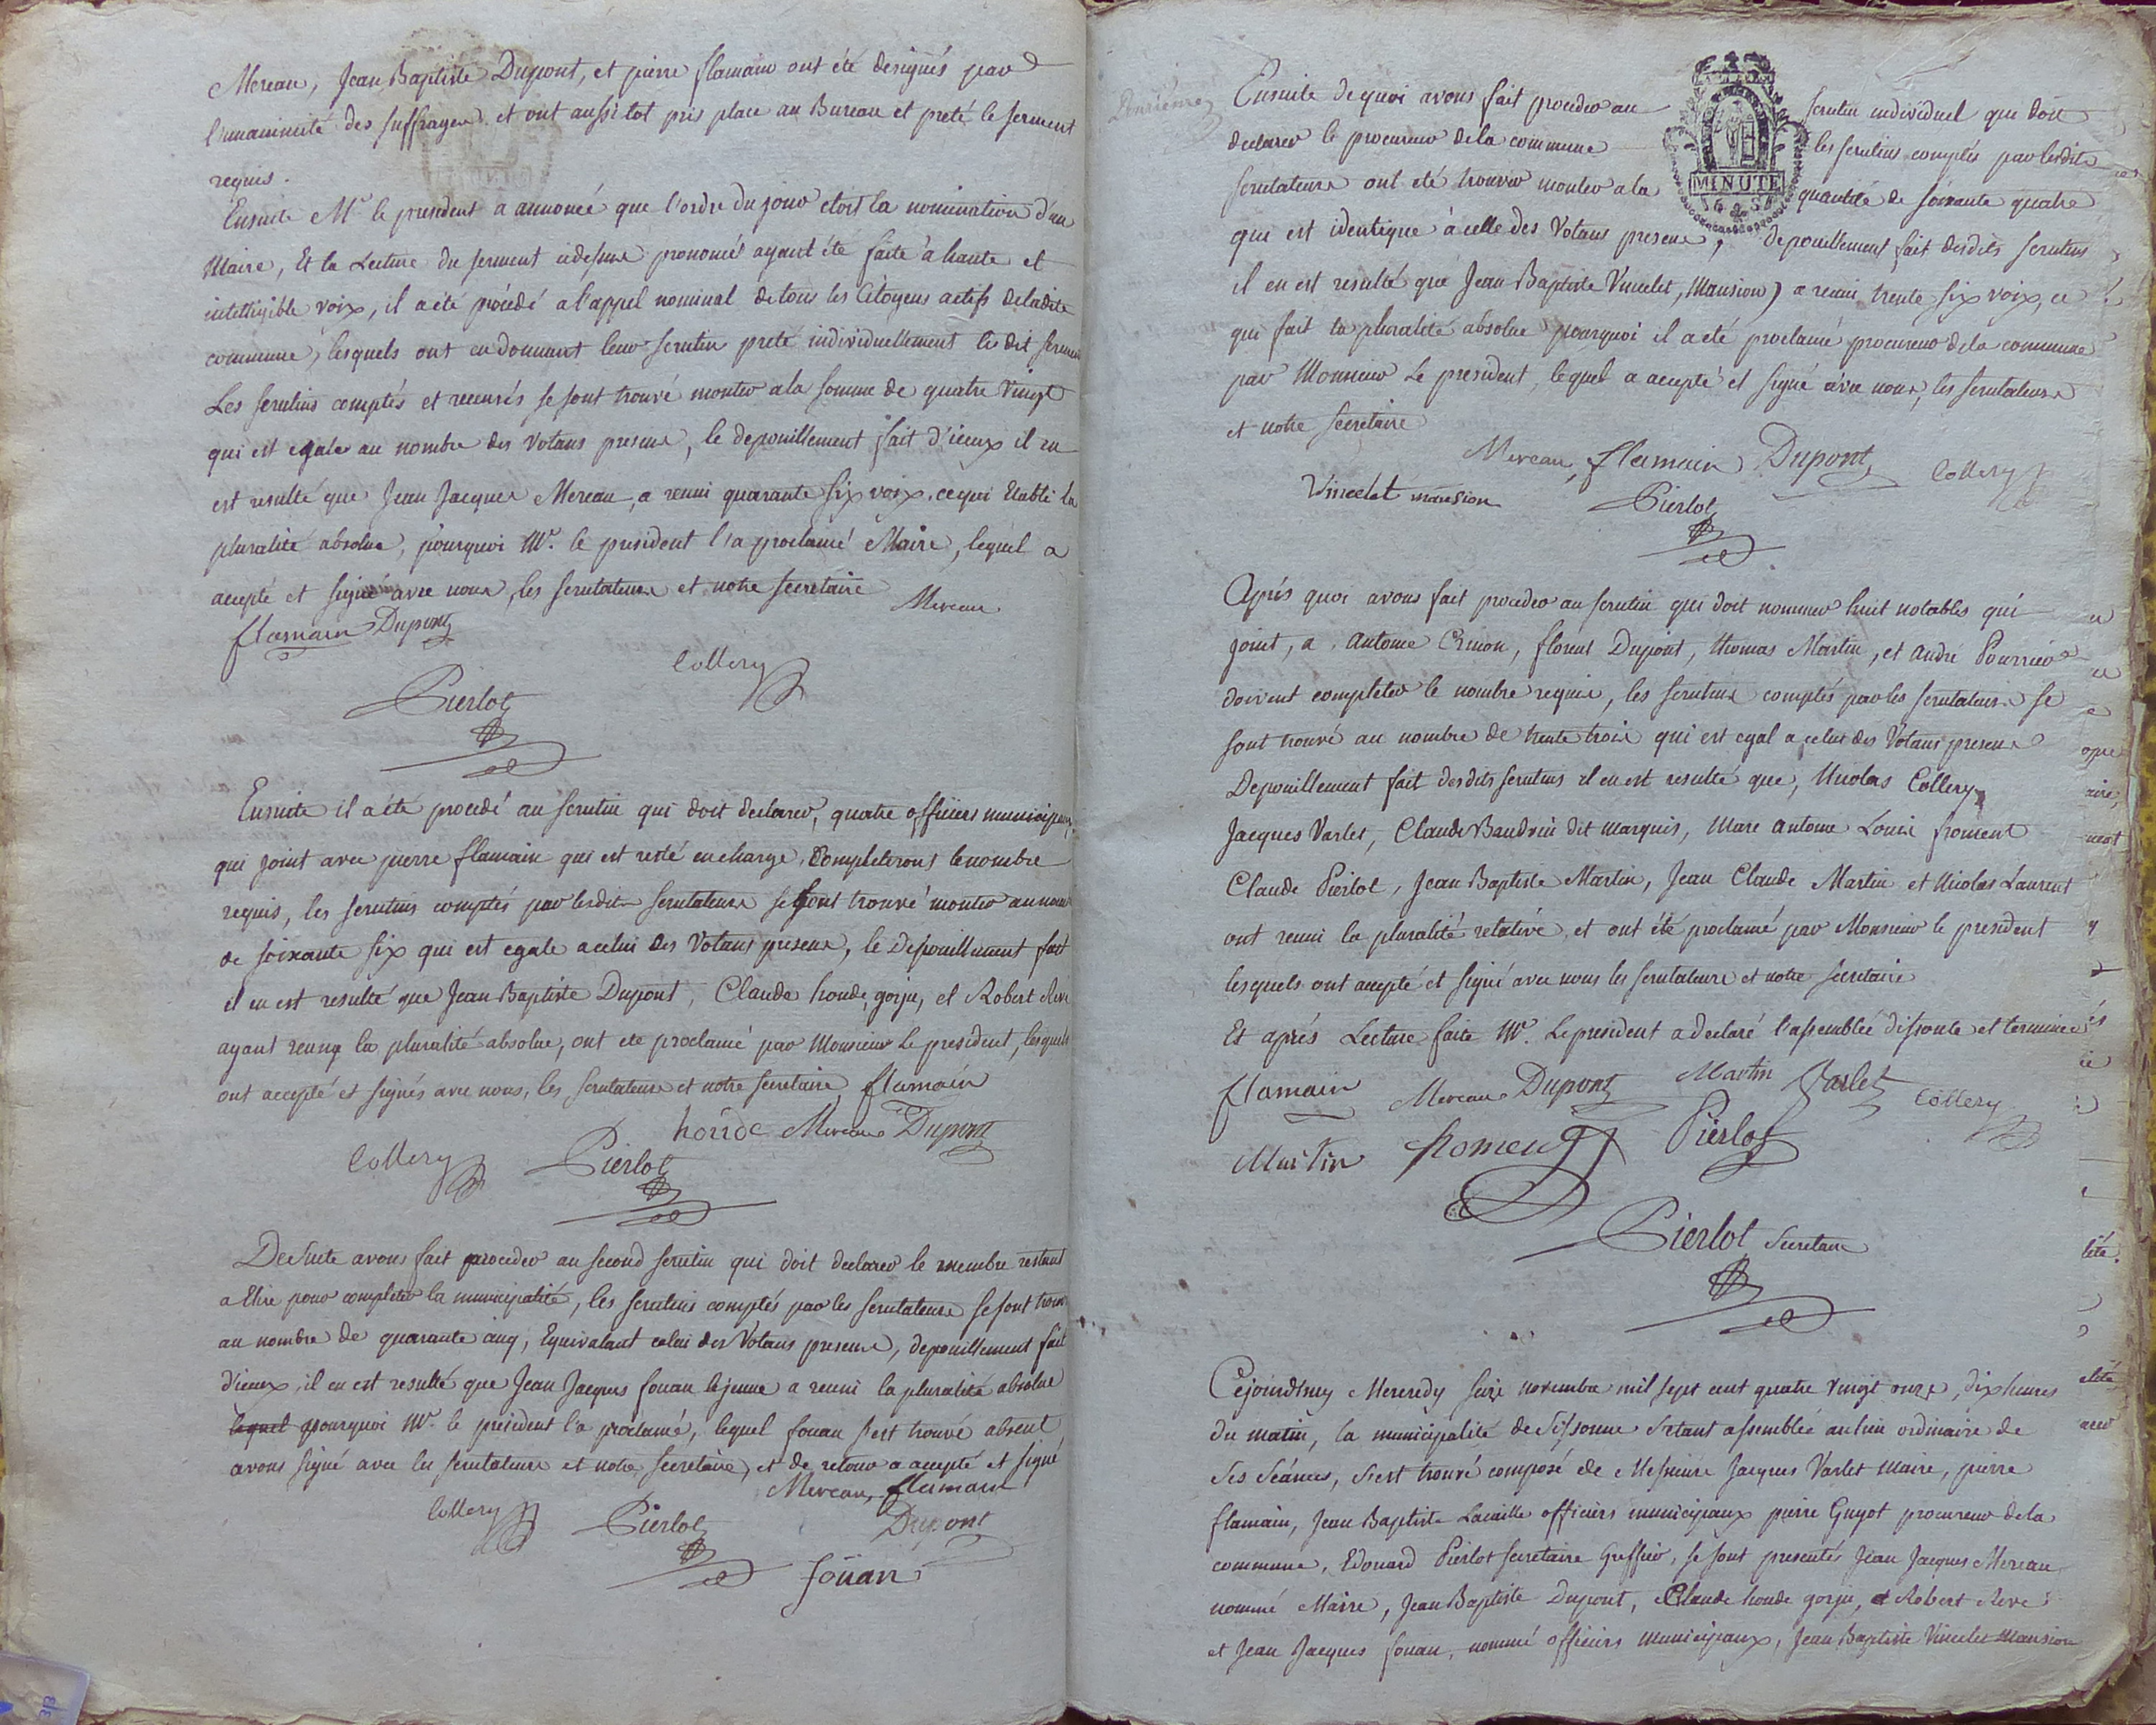 Mereau, Jean Baptiste Dupont, et pierre flamain ont été designés par
l'unanimité des suffrages et ont aussitot pris place au Bureau et preté le serment
requis.
Ensuite Mr. le president a annoncé que l'ordre du jour etoit la nomination d'un
Maire, Et la Lecture du serment cidessus prononcé ayant été faite à haute et
intelligible voix, il a été procédé a l'appel nominal de tous les Citoyens actifs de ladite
commune, lesquels ont en donnant leur scrutin preté individuellement le dit serment
Les scrutins comptés et recensés se sont trouvé monter a la somme de quatre Vingt
qui est egale au nombre des Votans presens, le depouillement fait d'iceux il en
est resulté que Jean Jacques Mereau, a reuni quarante six voix, ce qui Etabli la
pluralité absolue, pourquoi Mr. le president l'a proclamé Maire, lequel a
accepté et signé avec nous, les scrutateurs et notre secretaire Mereau
flamain Dupont
Collery
Pierlot
Ensuite il a été procedé au scrutin qui doit declarer, quatre officiers municipaux,
qui joint avec pierre flamain qui est resté en charge, Completeront le nombre
requis, les scrutins comptés par lesdits scrutateurs se sont trouvé monter au nom
de soixante six qui est egale a celui des Votans presens, le Depouillement fait
il en est resulté que Jean Baptiste Dupont, Claude houde, gorju, et Robert Revé
ayant reuny la pluralité absolue, ont eté proclamé par Monsieur Le president, lesquels
ont accepté et signés avec nous, les scrutateurs et notre secretaire flamain
houde Mereau Dupont
Collery Pierlot
De Suite avons fait proceder au second scrutin qui doit declarer le membre restant
a Elire pour completer la municipalité, les scrutins comptés par les scrutateurs se sont trouv
au nombre de quarante cinq, Equivalant celui des Votans presens, depouillement fait
d'iceux, il en est resulté que Jean Jacques fouan lejeune a reuni la pluralité absolue
lequel pourquoi Mr. le president l'a proclamé, lequel fouan s'est trouvé absent
avons signé avec les scrutateurs et notre secretaire, et de retour a accepté et signé
Mereau flamain
Collery Pierlot Dupont
foüan
Ensuite de quoi avons fait proceder au scrutin individuel qui doit
declarer le procureur de la commune les scrutins comptés par lesdits
MINUTE
scrutateurs ont eté trouver monter a la quantité de soixante quatre
qui est identique à celle des Votans presens, depouillement fait desdits scrutins
il en est resulté que Jean Baptiste Vincelet, Mansion) a reuni trente six voix, ce
qui fait la pluralité absolue pourquoi il a eté proclamé procureur de la commune
par Monsieur Le president, lequel a accepté et signé avec nous, les scrutateurs
et notre secretaire
Mereau flamain Dupont Collery
Vincelet mansion Pierlot
Après quoi avons fait proceder au scrutin qui doit nommer huit notables qui
joint, a Antoine Crinon, florent Dupont, thomas Martin, et André Pourrier
doivent completer le nombre requis, les scrutins comptés par les scrutateurs se
sont trouvé au nombre de trente trois qui est egal a celui des Votans presens
Depouillement fait desdits scrutins il en est resulté que, Nicolas Collery
Jacques Varlet, Claude Baudrin dit marquis, Marc Antoine Louis froment
Claude Pierlot, Jean Baptiste Martin, Jean Claude Martin et Nicolas Laurent
ont reuni la pluralité relative et ont été proclamé par Monsieur le president
lesquels ont accepté et signé avec nous les scrutateurs et notre secretaire
Et aprés Lecture faite Mr. Le president a declaré l'assemblée dissoute et terminée
flamain Mereau Dupont Martin Varlet Collery
Martin froment Pierlot
Pierlot Secretaire
Cejourdhuy Mercredy seize novembre mil sept cent quatre vingt onze, dix heures
du matin, la municipalité de Sissonne s'etant assemblée au lieu ordinaire de
ses séances, s'est trouvé composé de Messieurs Jacques Varlet maire, pierre
flamain, Jean Baptiste Lacaille officiers municipaux pierre Guyot procureur de la
commune, Edouard Pierlot secretaire Greffier, se sont presentés Jean Jacques Mereau
nommé Maire, Jean Baptiste Dupont, Claude houde gorju, et Robert Revé
et Jean Jacques fouan, nommé officiers municipaux, Jean Baptiste Vincelet Mansion